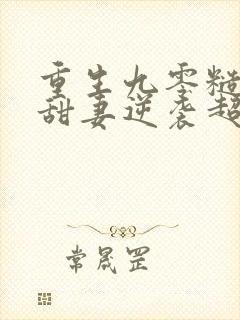 重生九零糙
甜妻逆袭超
常晟罡